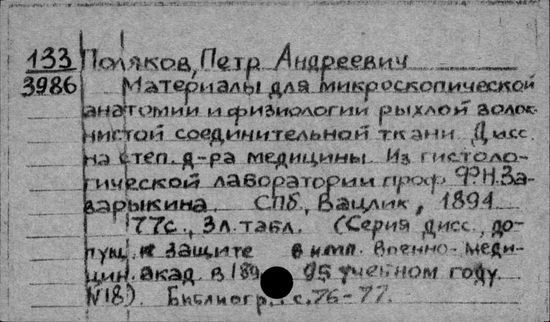 133 Поляков, Петр Андреевич
3986 Материалы для микроскопической
анатомии и физиологии рыхлой волок-
нистой соединительной ткани. Дисс.
на степ. д-ра медицины. Из гистоло-
гической лаборатории проф. Ф.Н.За-
варыкина. СПб, Вацлик, 1894
77с., 3л.табл. (Серия дисс., до-
пущ. к защите в имп. Военно-меди-
цин. акад. в 189 95 учебном году.
№18). Библиогр. с.76-77.